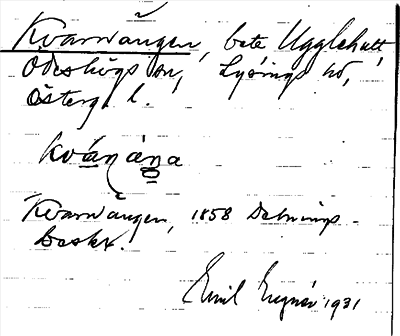 Kvarnängen, bete Ugglehult,
Ödeshögs sn, Lysings hd,
Östergl l.
kvánána
Kvarnängen, 1858 Delnings-
beskr.
Emil Eugnér 1931